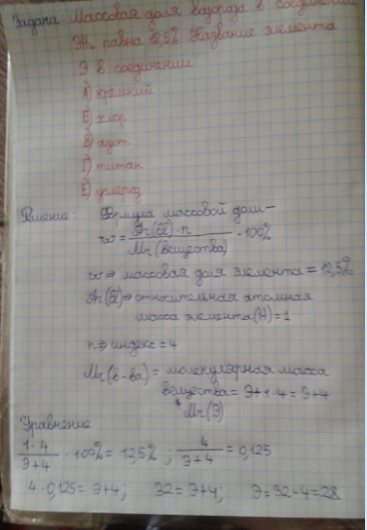 Задача: Массовая доля водорода в соединении
ЭН₄ равна 12,5%. Название элемента
Э в соединении
А) кремний
Б) хлор
В) азот
Г) титан
Е) углерод
Решение: Формула массовой доли —
w = Ar(Э)·n / Mr(вещества) · 100%
w ⇒ массовая доля элемента = 12,5%
Ar(Э) ⇒ относительная атомная
масса элемента (Н) = 1
n ⇒ индекс = 4
Mr(в-ва) = молекулярная масса
вещества = Э + 1·4 = Э + 4
Mr(Э)
Уравнение
1·4 / Э+4 · 100% = 12,5% ; 4 / Э+4 = 0,125
4·0,125 = Э+4; 32 = Э+4; Э = 32-4 = 28